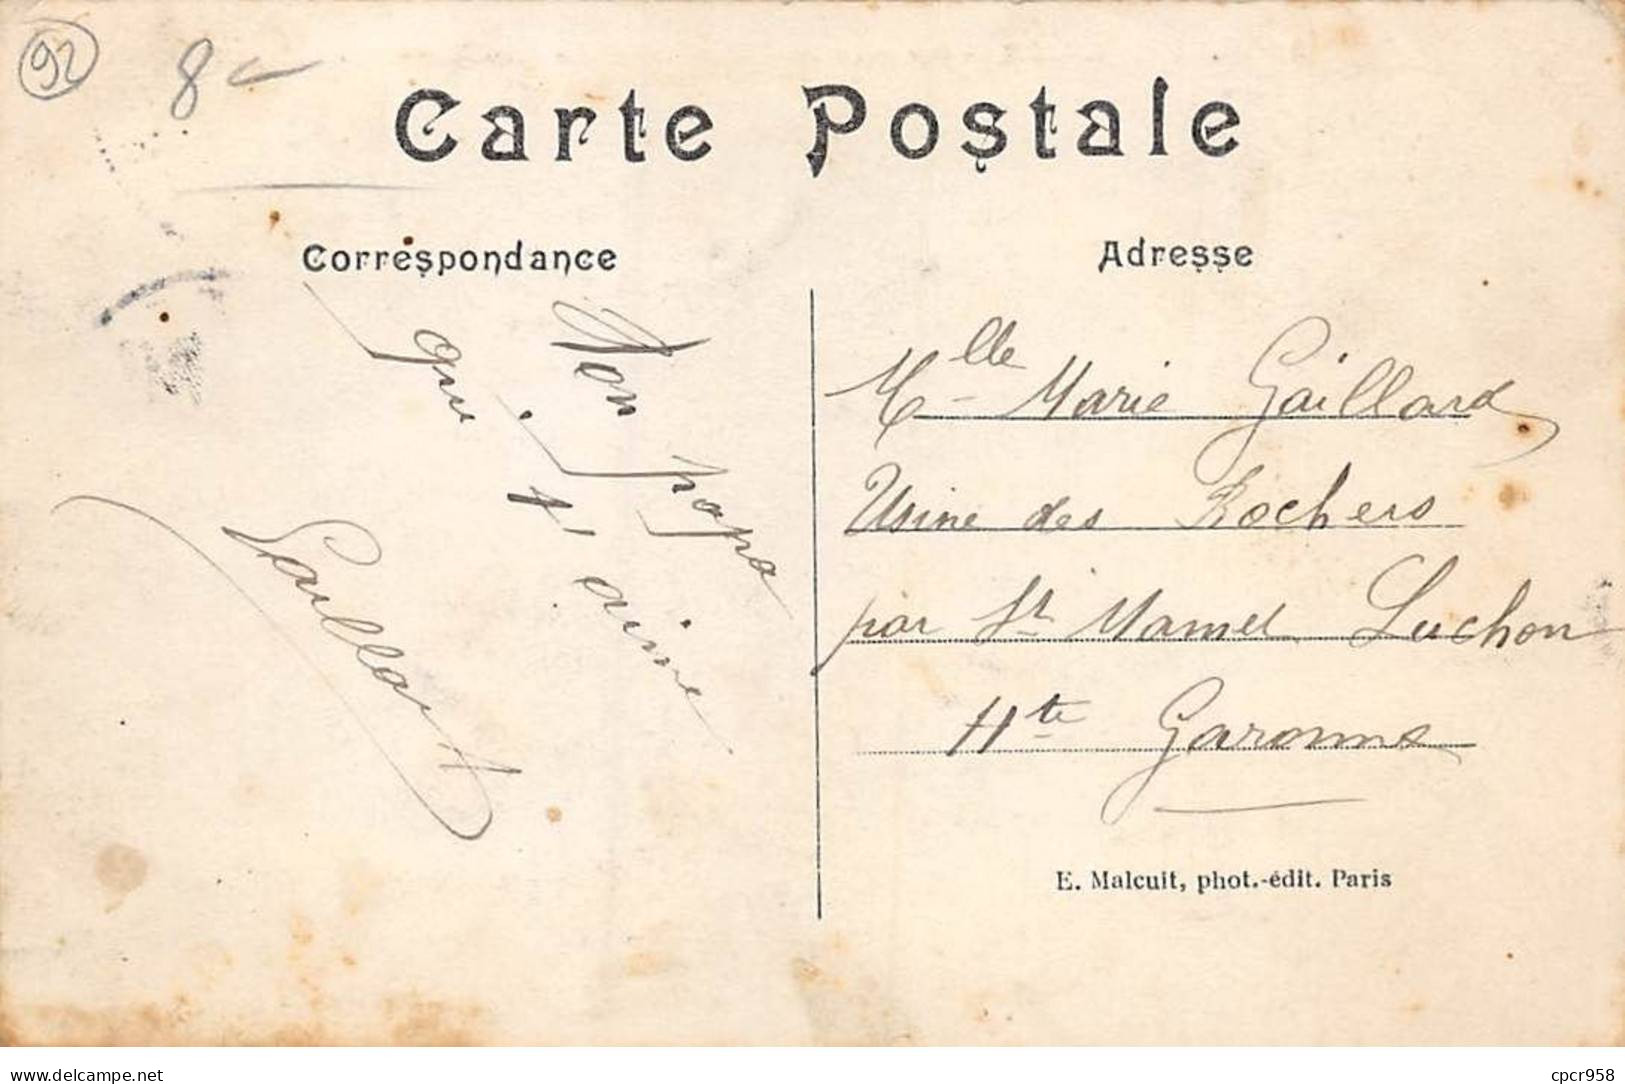 92
8
Carte Postale
Correspondance
Adresse
Mon papa
qui t'aime
Gaillard
Mlle Marie Gaillard
Usine des Rochers
par St Mamet Luchon
Hte Garonne
E. Malcuit, phot.-édit. Paris
delcampe.net
cpcr958